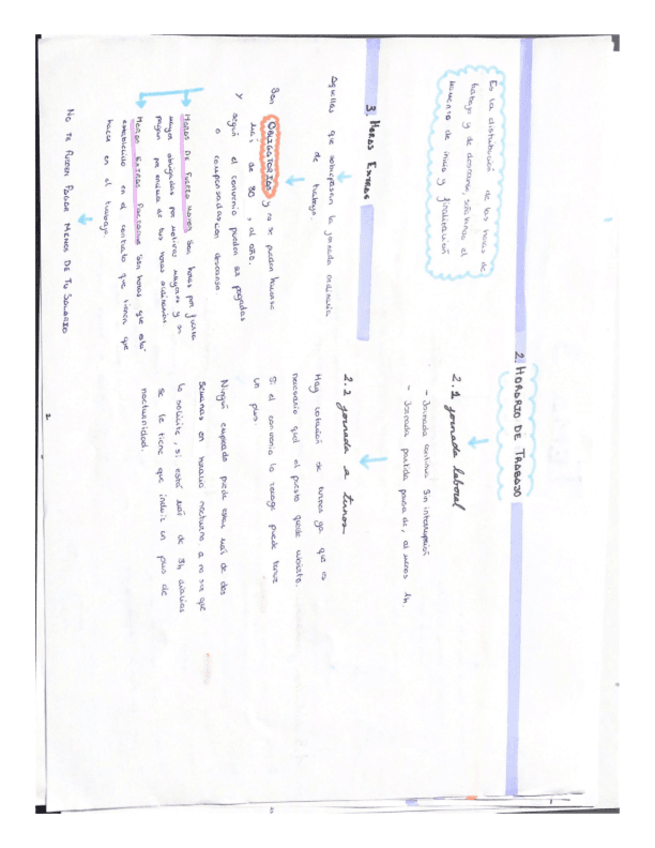 2. HORARIO DE TRABAJO
Es la distribución de las horas de
trabajo y de descanso, señalando el
momento de inicio y finalización
2.1 jornada laboral
- Jornada continua sin interrupción
- Jornada partida pausa de, al menos 1h.
2.2 jornada a turnos
Hay rotación de turnos ya que es
necesario que el puesto quede cubierto.
Si el convenio lo recoge puede tener
un plus.
Ningún empleado puede estar más de dos
semanas en horario nocturno a no ser que
lo solicite, si está más de 3h diarias
se le tiene que incluir un plus de
nocturnidad.
3. HORAS EXTRAS
Aquellas que sobrepasan la jornada ordinaria
de trabajo.
Son OBLIGATORIAS y no se pueden hacer
más de 80h, al año.
Y según el convenio pueden ser pagadas
o compensadas con descanso
HORAS DE FUERZA MAYOR son horas por fuerza
mayor obligadas por motivos mayores y se
pagan por encima de tus horas ordinarias
HORAS EXTRAS PACTADAS son horas que está
establecido en el contrato que tienen que
hacer en el trabajo.
NO TE PUEDEN PAGAR MENOS DE TU SALARIO
2